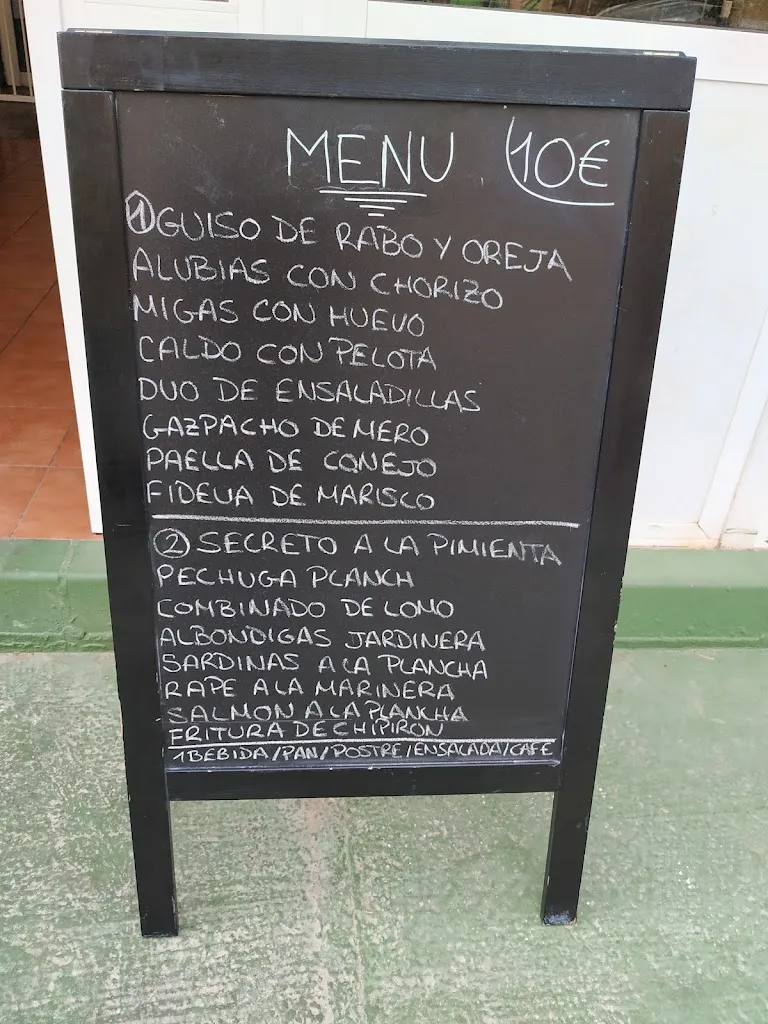 MENU 10€
1 GUISO DE RABO Y OREJA
ALUBIAS CON CHORIZO
MIGAS CON HUEVO
CALDO CON PELOTA
DUO DE ENSALADILLAS
GAZPACHO DE MERO
PAELLA DE CONEJO
FIDEUA DE MARISCO
2 SECRETO A LA PIMIENTA
PECHUGA PLANCH
COMBINADO DE LOMO
ALBONDIGAS JARDINERA
SARDINAS A LA PLANCHA
RAPE A LA MARINERA
SALMON A LA PLANCHA
FRITURA DE CHIPIRON
1 BEBIDA/PAN/POSTRE/ENSALADA/CAFE